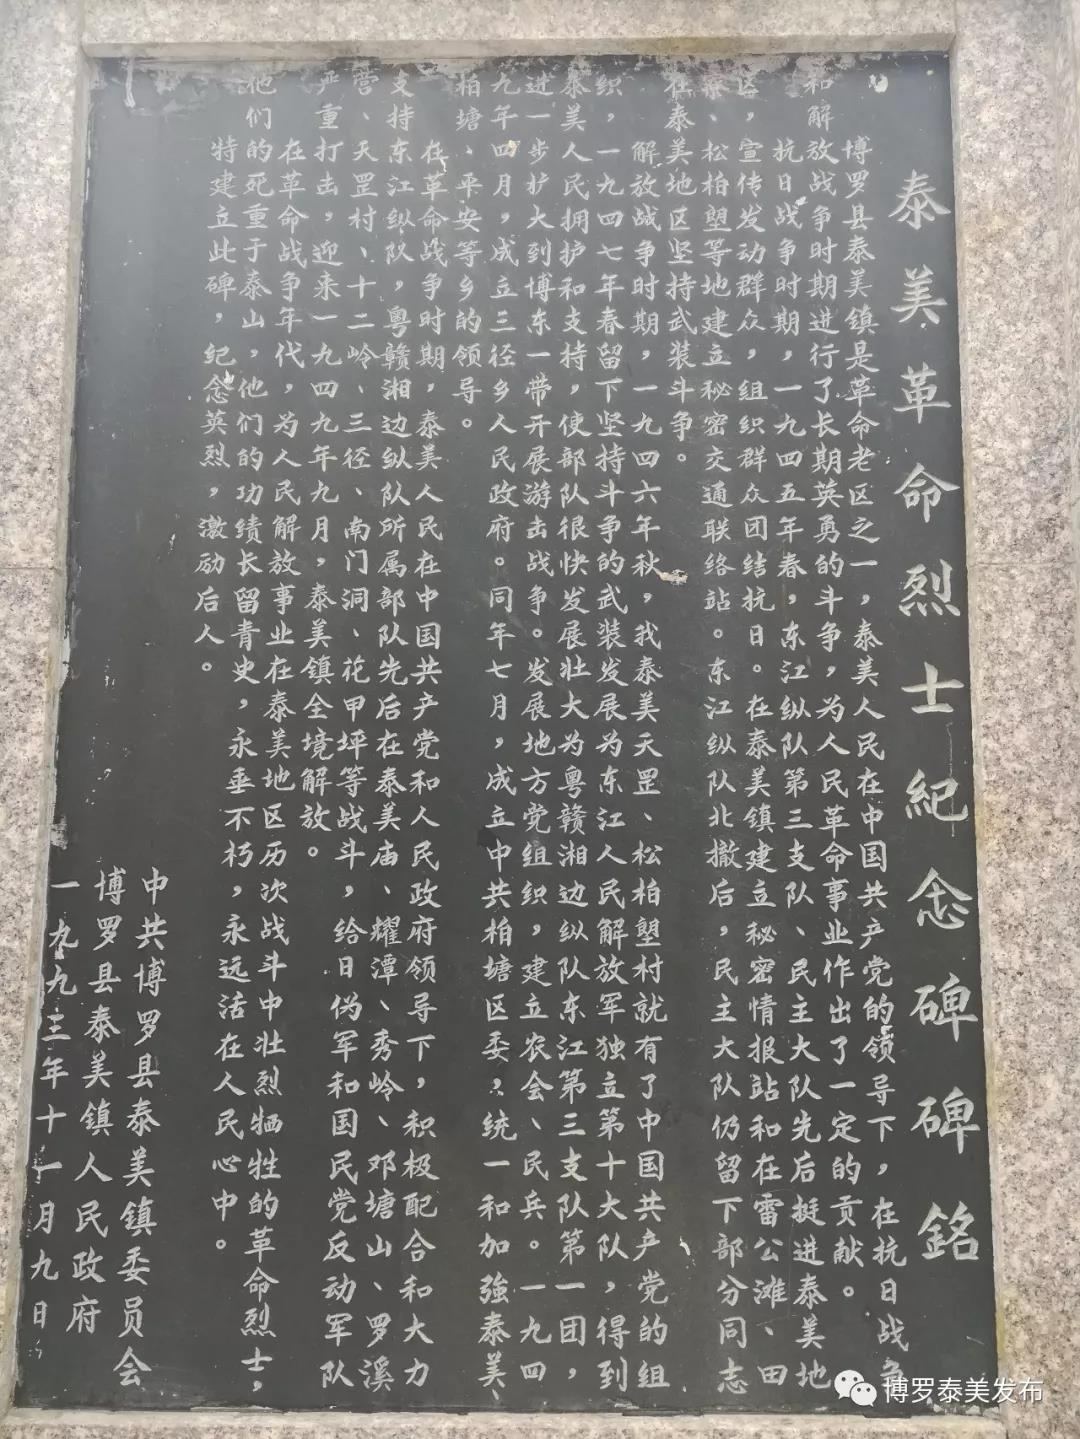 泰美革命烈士紀念碑碑銘
博罗县泰美镇是革命老区之一，泰美人民在中国共产党的领导下，在抗日战争
和解放战争时期进行了长期英勇的斗争，为人民革命事业作出了一定的贡献。
抗日战争时期，一九四五年春，东江纵队第三支队、民主大队先后挺进泰美地
区，宣传发动群众，组织群众团结抗日。在泰美镇建立秘密情报站和在雷公滩、田
、松柏塱等地建立秘密交通联络站。东江纵队北撤后，民主大队仍留下部分同志
在泰美地区坚持武装斗争。
解放战争时期，一九四六年秋，我泰美天罡、松柏塱村就有了中国共产党的组
织，一九四七年春留下坚持斗争的武装发展为东江人民解放军独立第十大队，得到
泰美人民拥护和支持，使部队很快发展壮大为粤赣湘边纵队东江第三支队第一团，
进一步扩大到博东一带开展游击战争。发展地方党组织，建立农会、民兵。一九四
九年四月，成立三径乡人民政府。同年七月，成立中共柏塘区委，统一和加強泰美、
柏塘、平安等乡的领导。
在革命战争时期，泰美人民在中国共产党和人民政府领导下，积极配合和大力
支持东江纵队，粤赣湘边纵队所属部队先后在泰美庙、耀潭、秀岭、邓塘山、罗溪
营、天罡村、十二岭、三径、南门洞、花甲坪等战斗，给日伪军和国民党反动军队
严重打击，迎来一九四九年九月，泰美镇全境解放。
在革命战争年代，为人民解放事业在泰美地区历次战斗中壮烈牺牲的革命烈士，
他们的死重于泰山，他们的功绩长留青史，永垂不朽，永远活在人民心中。
特建立此碑，纪念英烈，激励后人。
中共博罗县泰美镇委员会
博罗县泰美镇人民政府
一九九三年十一月九日
博罗泰美发布